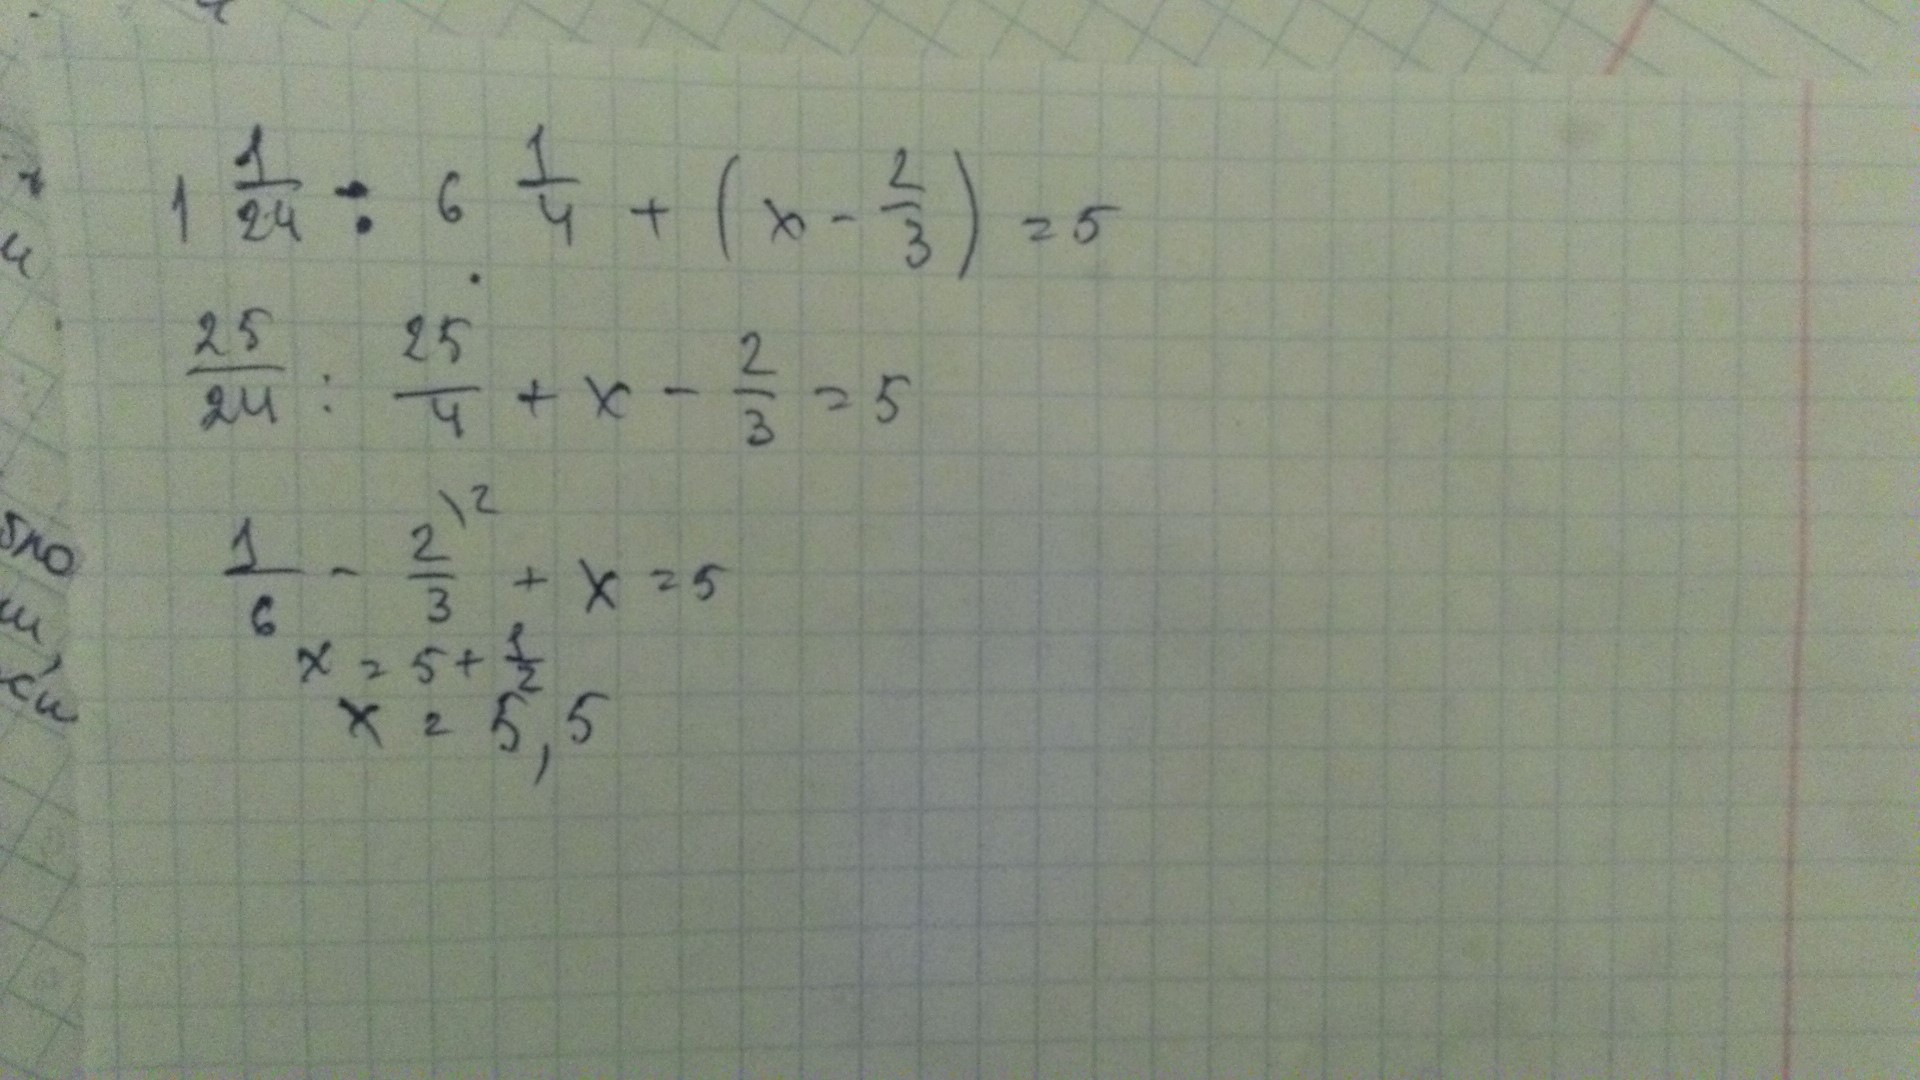 1 1/24 : 6 1/4 + (x - 2/3) = 5
25/24 : 25/4 + x - 2/3 = 5
1/6 - 2/3 \2 + x = 5
x = 5 + 1/2
x = 5,5